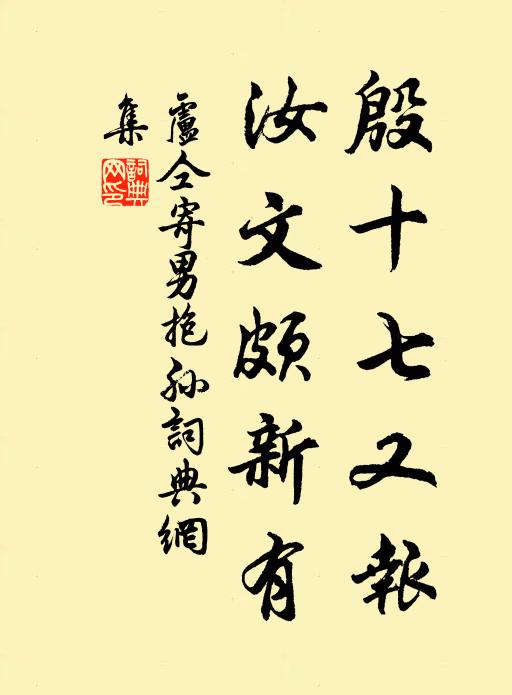 殷十七又報
汝文頗新有
盧仝寄男抱孙詞典網
集
詞典
网印